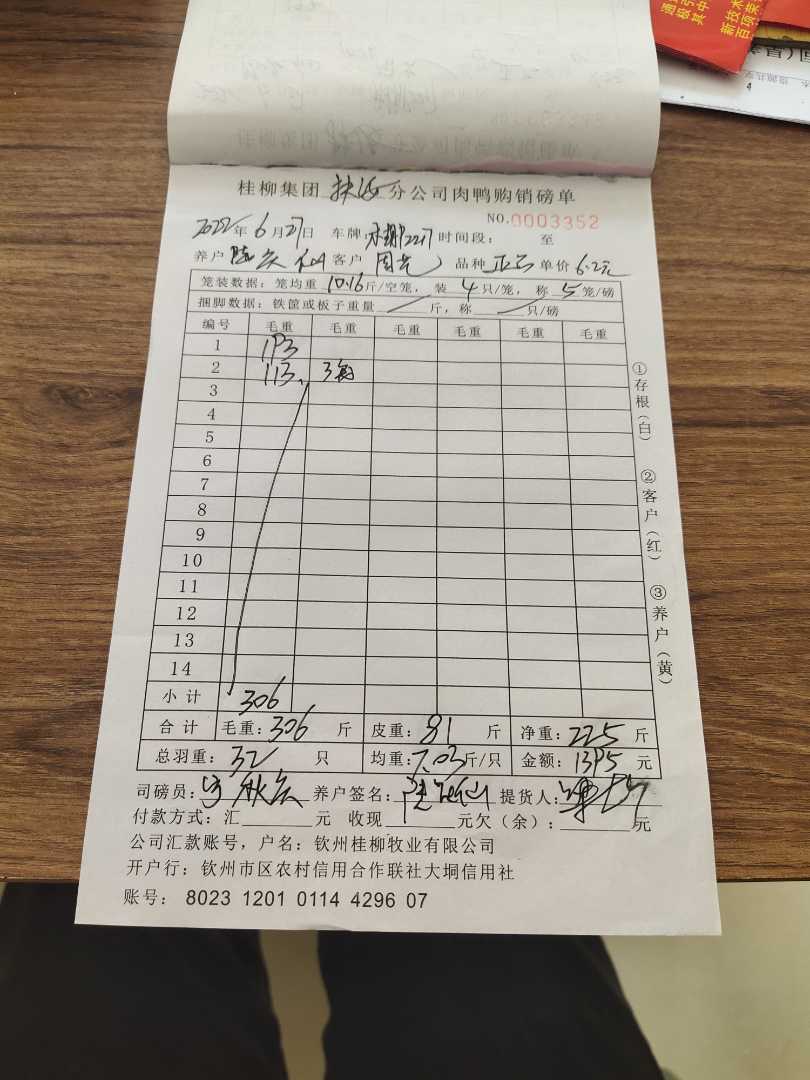 桂柳集团 扶沙 分公司肉鸭购销磅单
NO.0003352
2022年6月27日 车牌: 2217 时间段: 至
养户 客户 品种 单价 6.2元
笼装数据: 笼均重 10.16 斤/空笼, 装 4 只/笼, 称 5 笼/磅
捆脚数据: 铁筐或板子重量 斤, 称 只/磅
编号 毛重 毛重 毛重 毛重 毛重 毛重
1 193
2 113 3
3
4
5
6
7
8
9
10
11
12
13
14
小计 306
合计 毛重: 306 斤 皮重: 81 斤 净重: 225 斤
总羽重: 32 只 均重: 7.03 斤/只 金额: 1395 元
司磅员: 养户签名: 提货人:
付款方式: 汇 元 收现 元欠(余): 元
公司汇款账号, 户名: 钦州桂柳牧业有限公司
开户行: 钦州市区农村信用合作联社大垌信用社
账号: 8023 1201 0114 4296 07
①存根(白)
②客户(红)
③养户(黄)
新技术
百项荣
极
其中